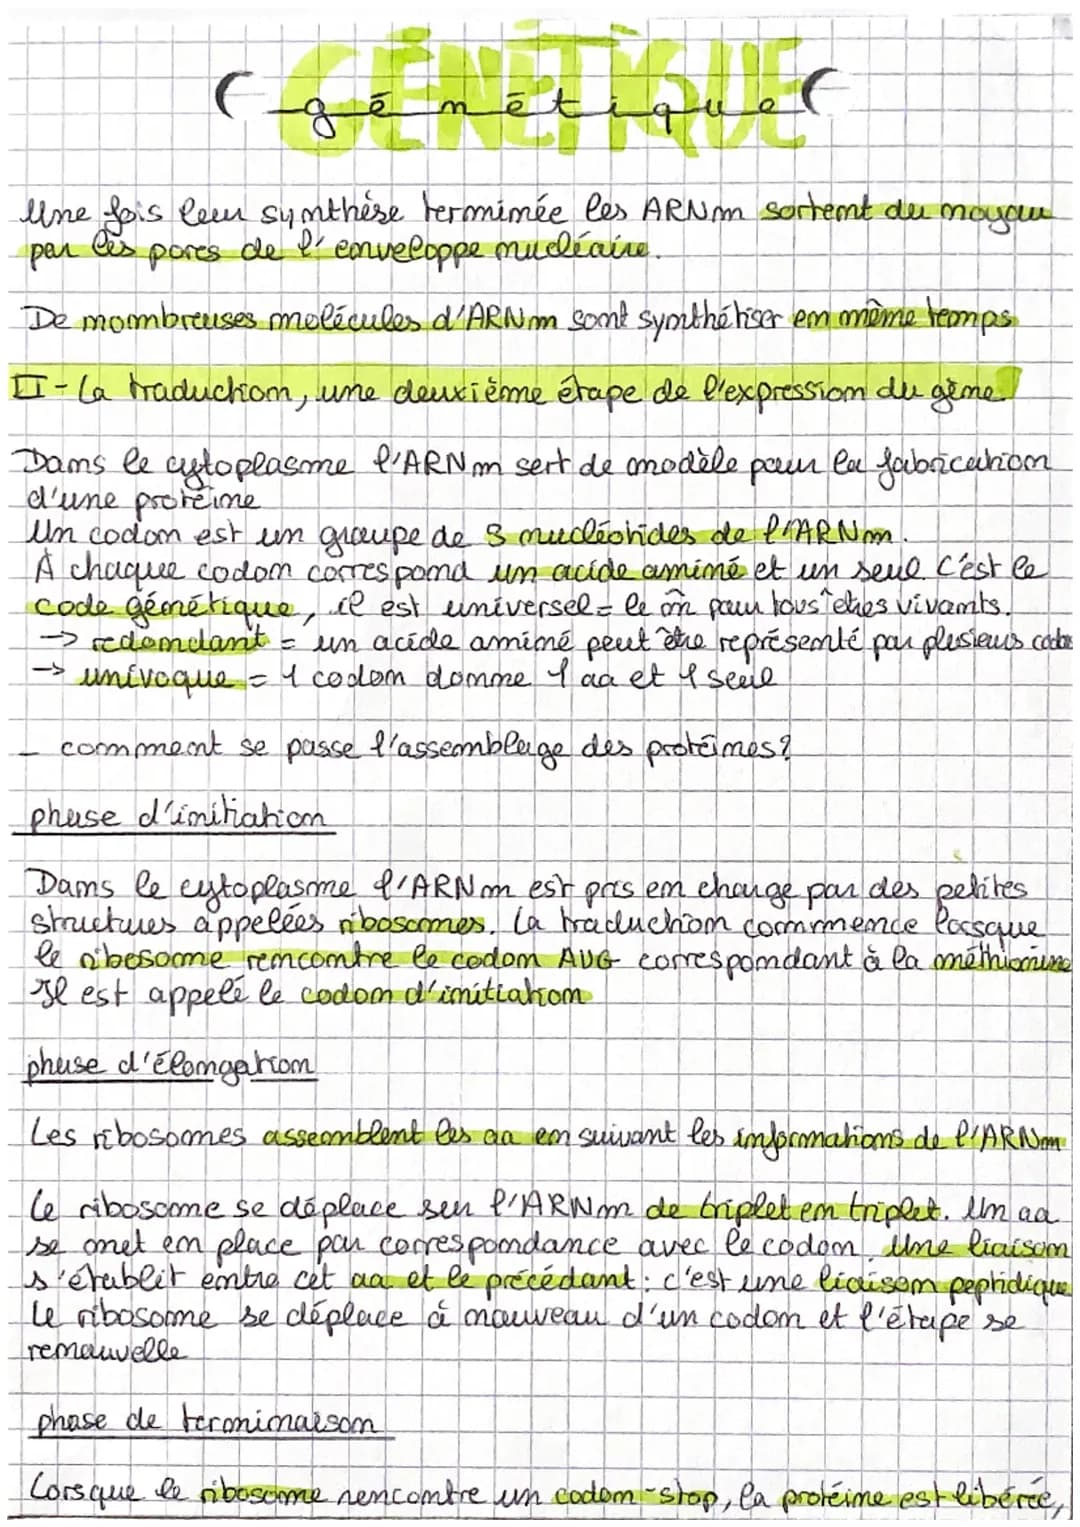 GÉNÉTIQUE
génétique
Une fois leur synthèse terminée les ARNm sortent du noyau
par les pores de l'enveloppe nucléaire.
De nombreuses molécules d'ARNm sont synthétiser en même temps
II - La traduction, une deuxième étape de l'expression du gène
Dans le cytoplasme l'ARNm sert de modèle pour la fabrication
d'une protéine
Un codon est un groupe de 3 nucléotides de l'ARNm.
À chaque codon correspond un acide aminé et un seul C'est le
code génétique, il est universel = le m̂ pour tous êtres vivants.
→ redondant = un acide aminé peut être représenté par plusieurs
→ univoque = 1 codon donne 1 aa et 1 seul
_ comment se passe l'assemblage des protéines?
phase d'initiation
Dans le cytoplasme l'ARNm est pris en charge par des petites
structures appelées ribosomes. La traduction commence lorsque
le ribosome rencontre le codon AUG correspondant à la méthionine
Il est appelé le codon d'initiation
phase d'élongation
Les ribosomes assemblent les aa en suivant les informations de l'ARNm
Le ribosome se déplace sur l'ARNm de triplet en triplet. Un aa
se met en place par correspondance avec le codon. Une liaison
s'établit entre cet aa et le précédant : c'est une liaison peptidique
Le ribosome se déplace à nouveau d'un codon et l'étape se
renouvelle
phase de terminaison
Lorsque le ribosome rencontre un codon-stop, la protéine est libérée,